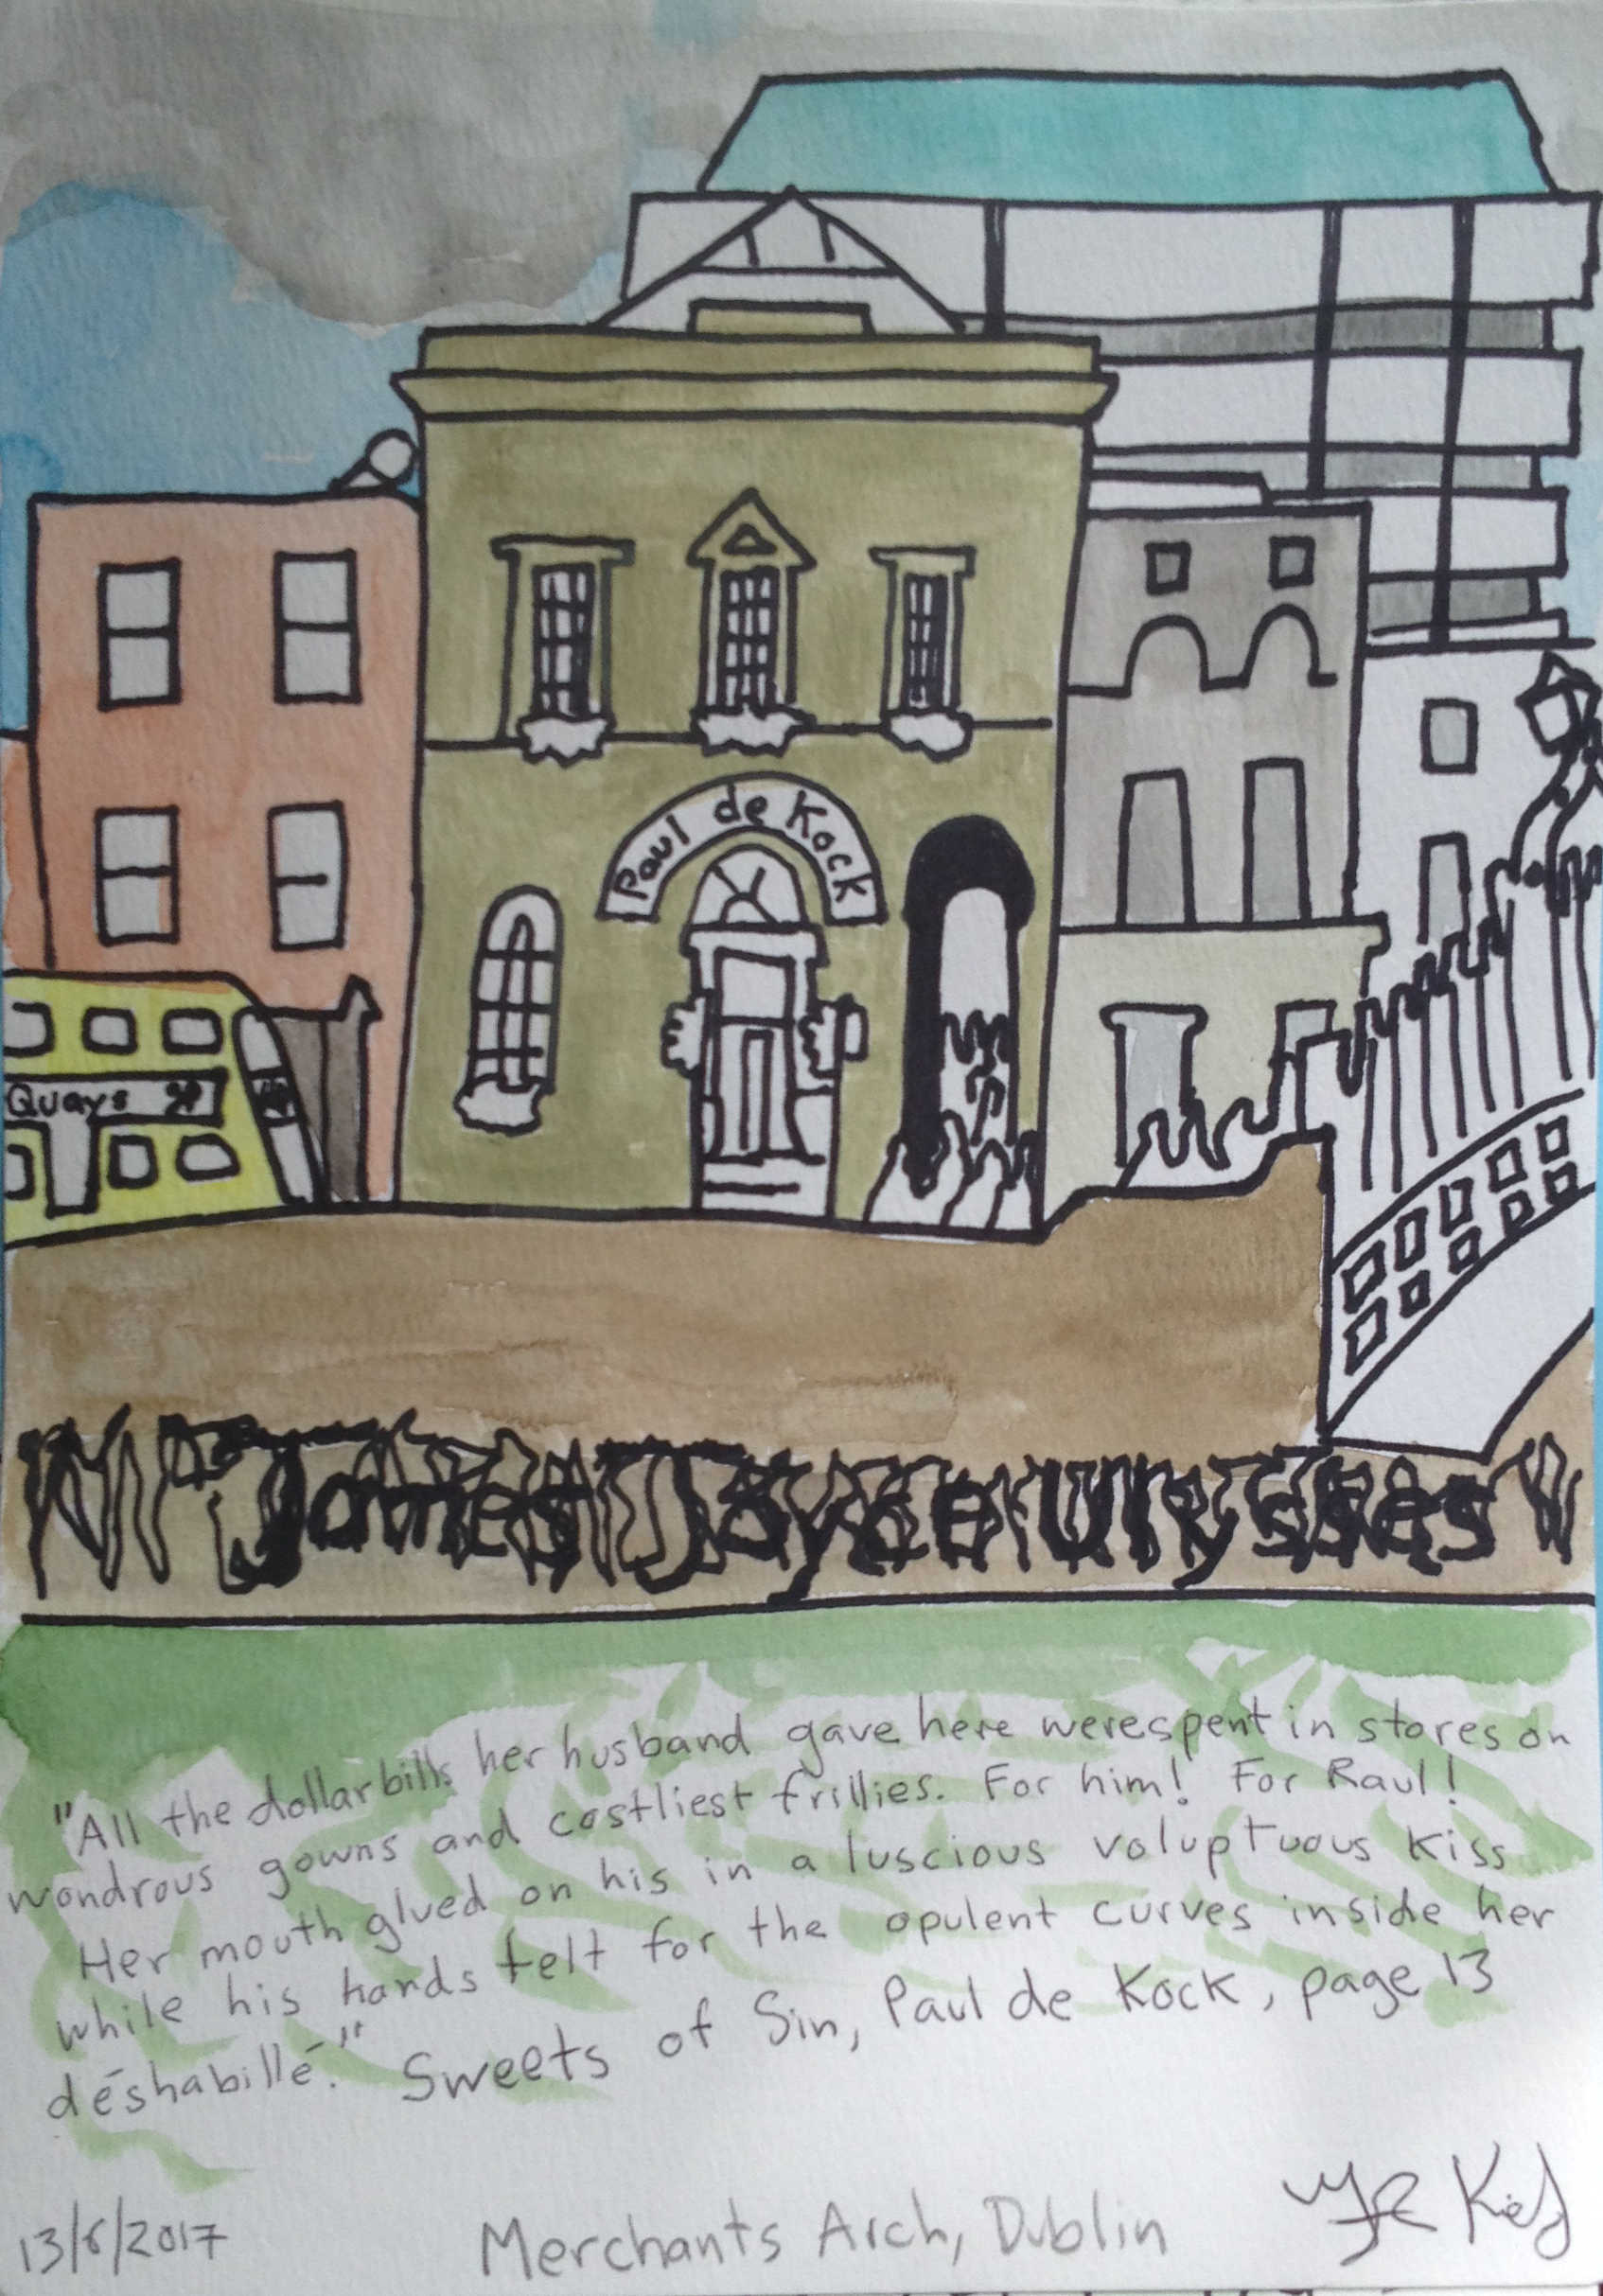 Paul de Kock
Quays
James Joyce Ulysses
"All the dollarbills her husband gave here werespent in stores on
wondrous gowns and costliest frillies. For him! For Raul!
Her mouth glued on his in a luscious voluptuous kiss
while his hands felt for the opulent curves inside her
déshabillé." Sweets of Sin, Paul de Kock, page 13
13/6/2017
Merchants Arch, Dublin